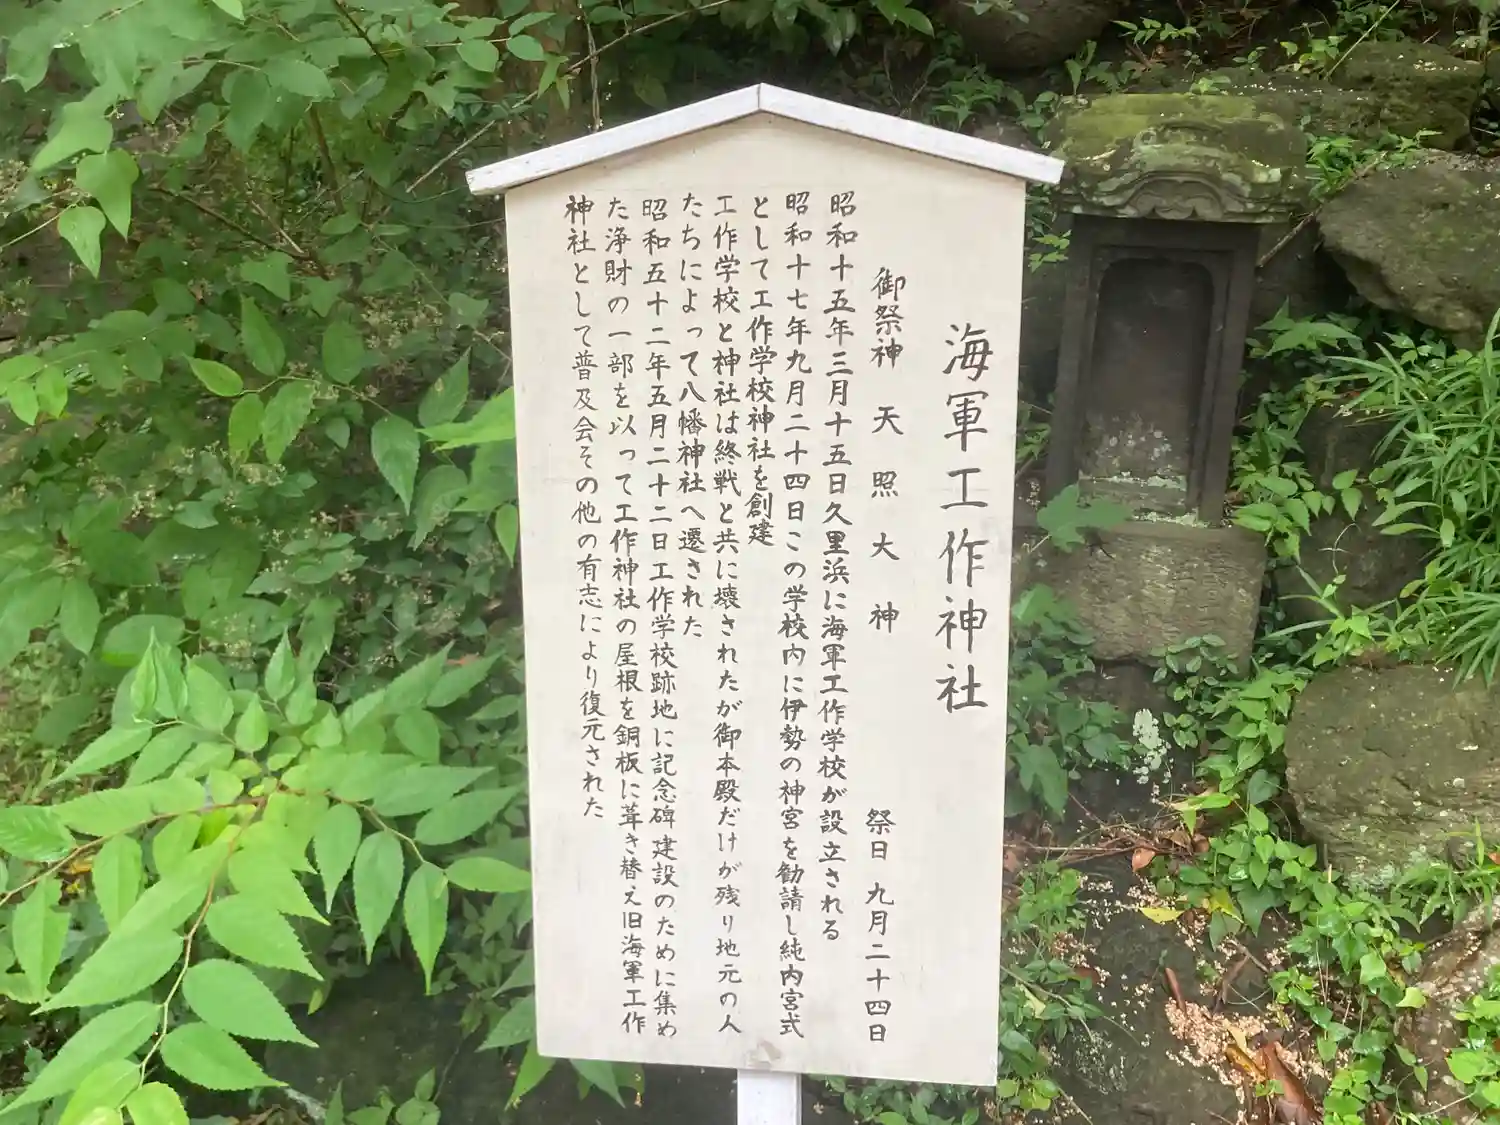 海軍工作神社
御祭神　天照大神　祭日　九月二十四日
昭和十五年三月十五日久里浜に海軍工作学校が設立される
昭和十七年九月二十四日この学校内に伊勢の神宮を勧請し純内宮式
として工作学校神社を創建
工作学校と神社は終戦と共に壊されたが御本殿だけが残り地元の人
たちによって八幡神社へ遷された
昭和五十二年五月二十二日工作学校跡地に記念碑建設のために集め
た浄財の一部を以って工作神社の屋根を銅板に葺き替え旧海軍工作
神社として普及会その他の有志により復元された